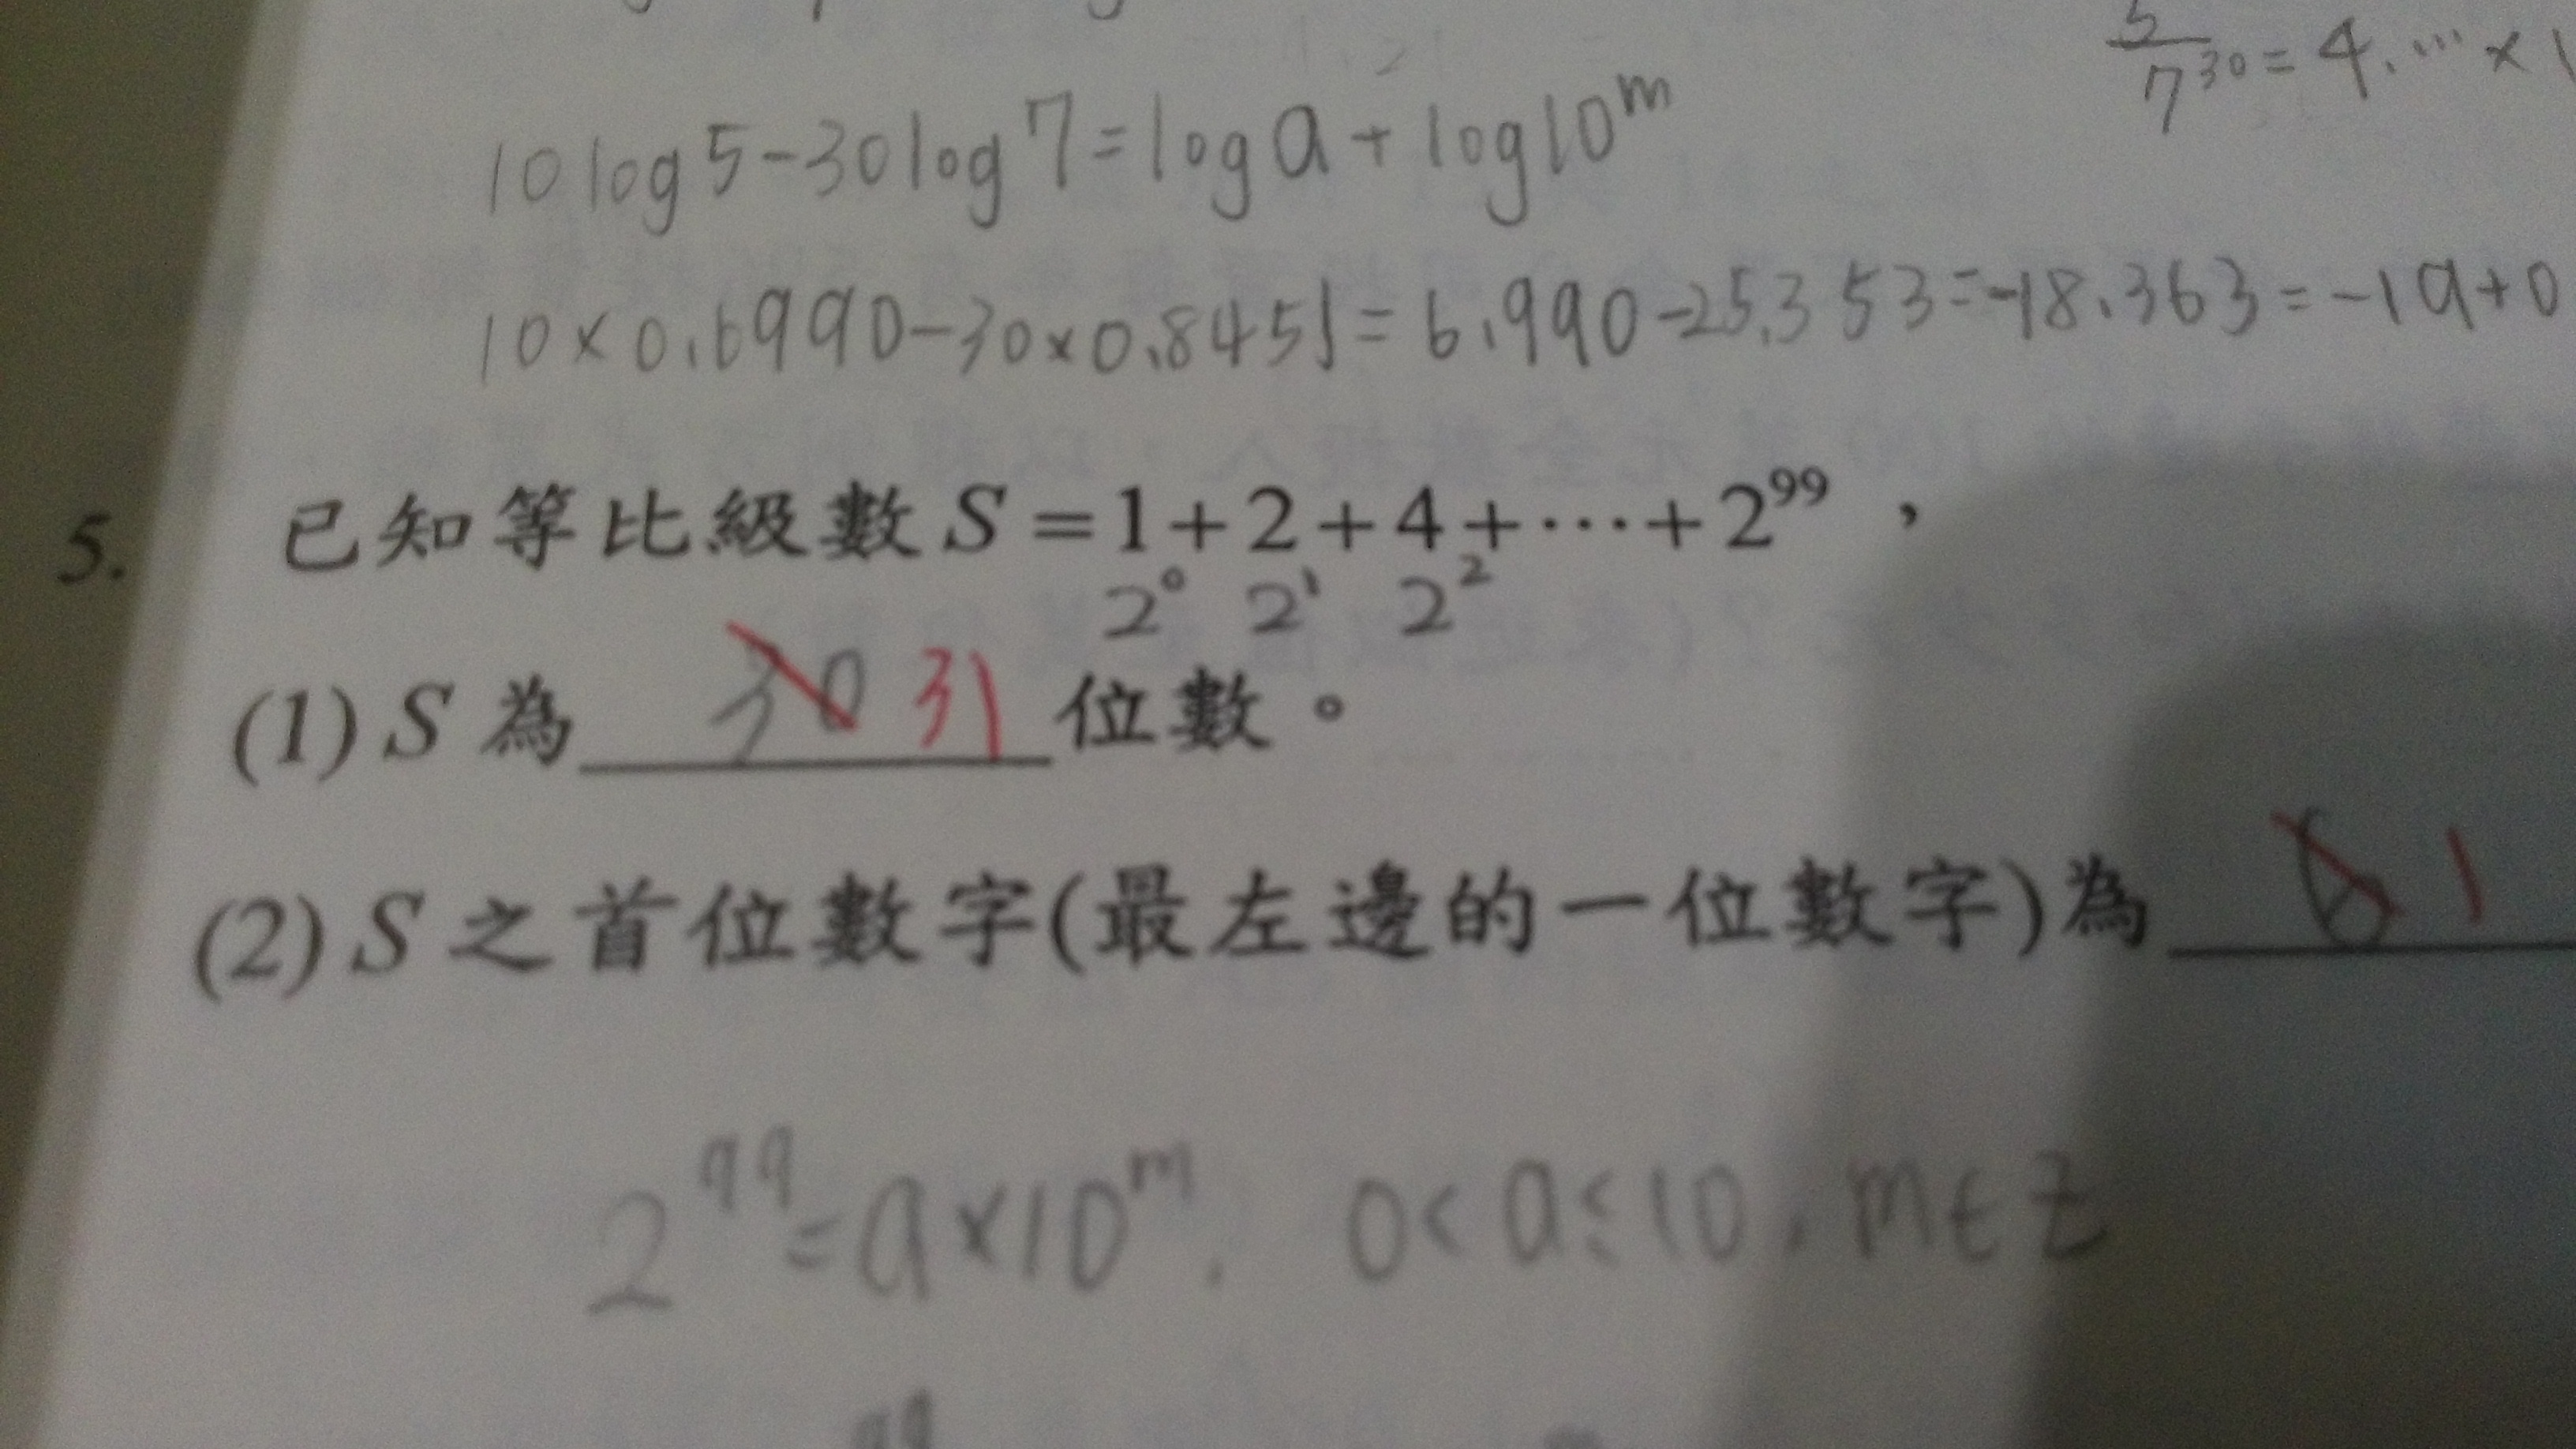 5/7³⁰ = 4.… × 1
10 log 5 - 30 log 7 = log a + log 10ᵐ
10 × 0.6990 - 30 × 0.8451 = 6.990 - 25.353 = -18.363 = -19 + 0
5. 已知等比級數 S = 1 + 2 + 4 + ⋯ + 2⁹⁹,
2⁰ 2¹ 2²
(1) S 為 30 31 位數。
(2) S 之首位數字(最左邊的一位數字)為 6 1
2⁹⁹ = a × 10ᵐ, 0 < a ≤ 10, m ∈ Z